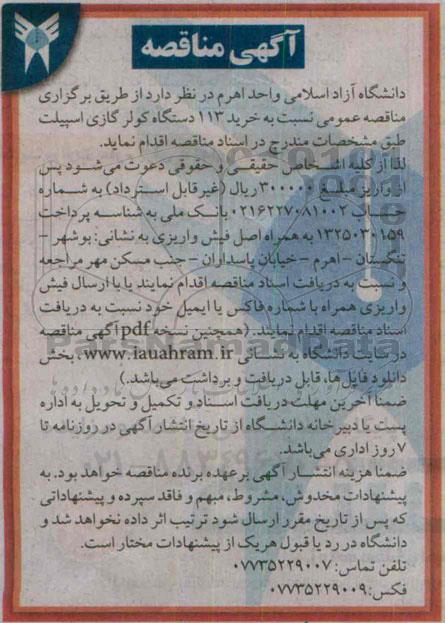 آگهی مناقصه
دانشگاه آزاد اسلامی واحد اهرم در نظر دارد از طریق برگزاری
مناقصه عمومی نسبت به خرید ۱۱۳ دستگاه کولر گازی اسپیلت
طبق مشخصات مندرج در اسناد مناقصه اقدام نماید.
لذا از کلیه اشخاص حقیقی و حقوقی دعوت می‌شود پس
از واریز مبلغ ۳۰۰۰۰۰ ریال (غیر قابل استرداد) به شماره
حساب ۰۲۱۶۲۲۷۰۸۱۰۰۲ بانک ملی به شناسه پرداخت
۱۳۲۵۰۳۰۱۵۹ به همراه اصل فیش واریزی به نشانی: بوشهر -
تنگستان - اهرم - خیابان پاسداران - جنب مسکن مهر مراجعه
و نسبت به دریافت اسناد مناقصه اقدام نمایند یا با ارسال فیش
واریزی همراه با شماره فاکس یا ایمیل خود نسبت به دریافت
اسناد مناقصه اقدام نمایند. (همچنین نسخه pdf آگهی مناقصه
در سایت دانشگاه به نشانی www.iauahram.ir، بخش
دانلود فایل‌ها، قابل دریافت و برداشت می‌باشد.)
ضمنا آخرین مهلت دریافت اسناد و تکمیل و تحویل به اداره
پست یا دبیرخانه دانشگاه از تاریخ انتشار آگهی در روزنامه تا
۷ روز اداری می‌باشد.
ضمنا هزینه انتشار آگهی بر عهده برنده مناقصه خواهد بود. به
پیشنهادات مخدوش، مشروط، مبهم و فاقد سپرده و پیشنهاداتی
که پس از تاریخ مقرر ارسال شود ترتیب اثر داده نخواهد شد و
دانشگاه در رد یا قبول هر یک از پیشنهادات مختار است.
تلفن تماس: ۰۷۷۳۵۲۲۹۰۰۷
فکس: ۰۷۷۳۵۲۲۹۰۰۹
ParsNamadData